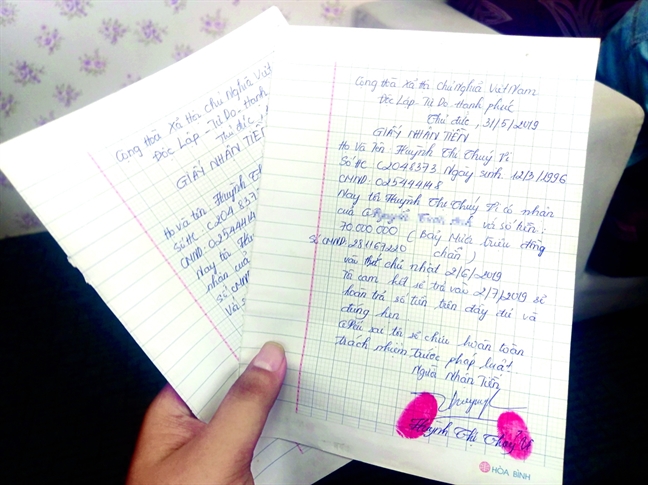 Cộng Hòa Xã Hội Chủ Nghĩa Việt
Độc Lập - Tự Do - Hạnh
Thủ đức
GIẤY NHẬN TIỀN
Họ Và tên: Huỳnh Th
Số HC: C204837
CMND: 0254441
Nay tôi Hu
nhận của
Số CMN
Cộng Hòa Xã Hội Chủ Nghĩa Việt Nam
Độc Lập - Tự Do Hạnh phúc
Thủ đức, 31/5/2019
GIẤY NHẬN TIỀN
Họ Và Tên Huỳnh Thị Thuý Vi
Số HC: C2048373. Ngày sinh 12/3/1996
CMND: 025444148
Nay tôi Huỳnh Thị Thuý Vi có nhận
của và số tiền:
70.000.000 (Bảy Mươi triệu đồng
chẵn)
Số CMND: 281167220
vào chủ nhật 2/6/2019
Tôi cam kết sẽ trả vào 2/7/2019 sẽ
hoàn trả số tiền trên đầy đủ và
đúng hẹn
Nếu sai tôi sẽ chịu hoàn toàn
trách nhiệm trước pháp luật.
Người Nhận Tiền
Huỳnh Thị Thuý Vi
HÒA BÌNH